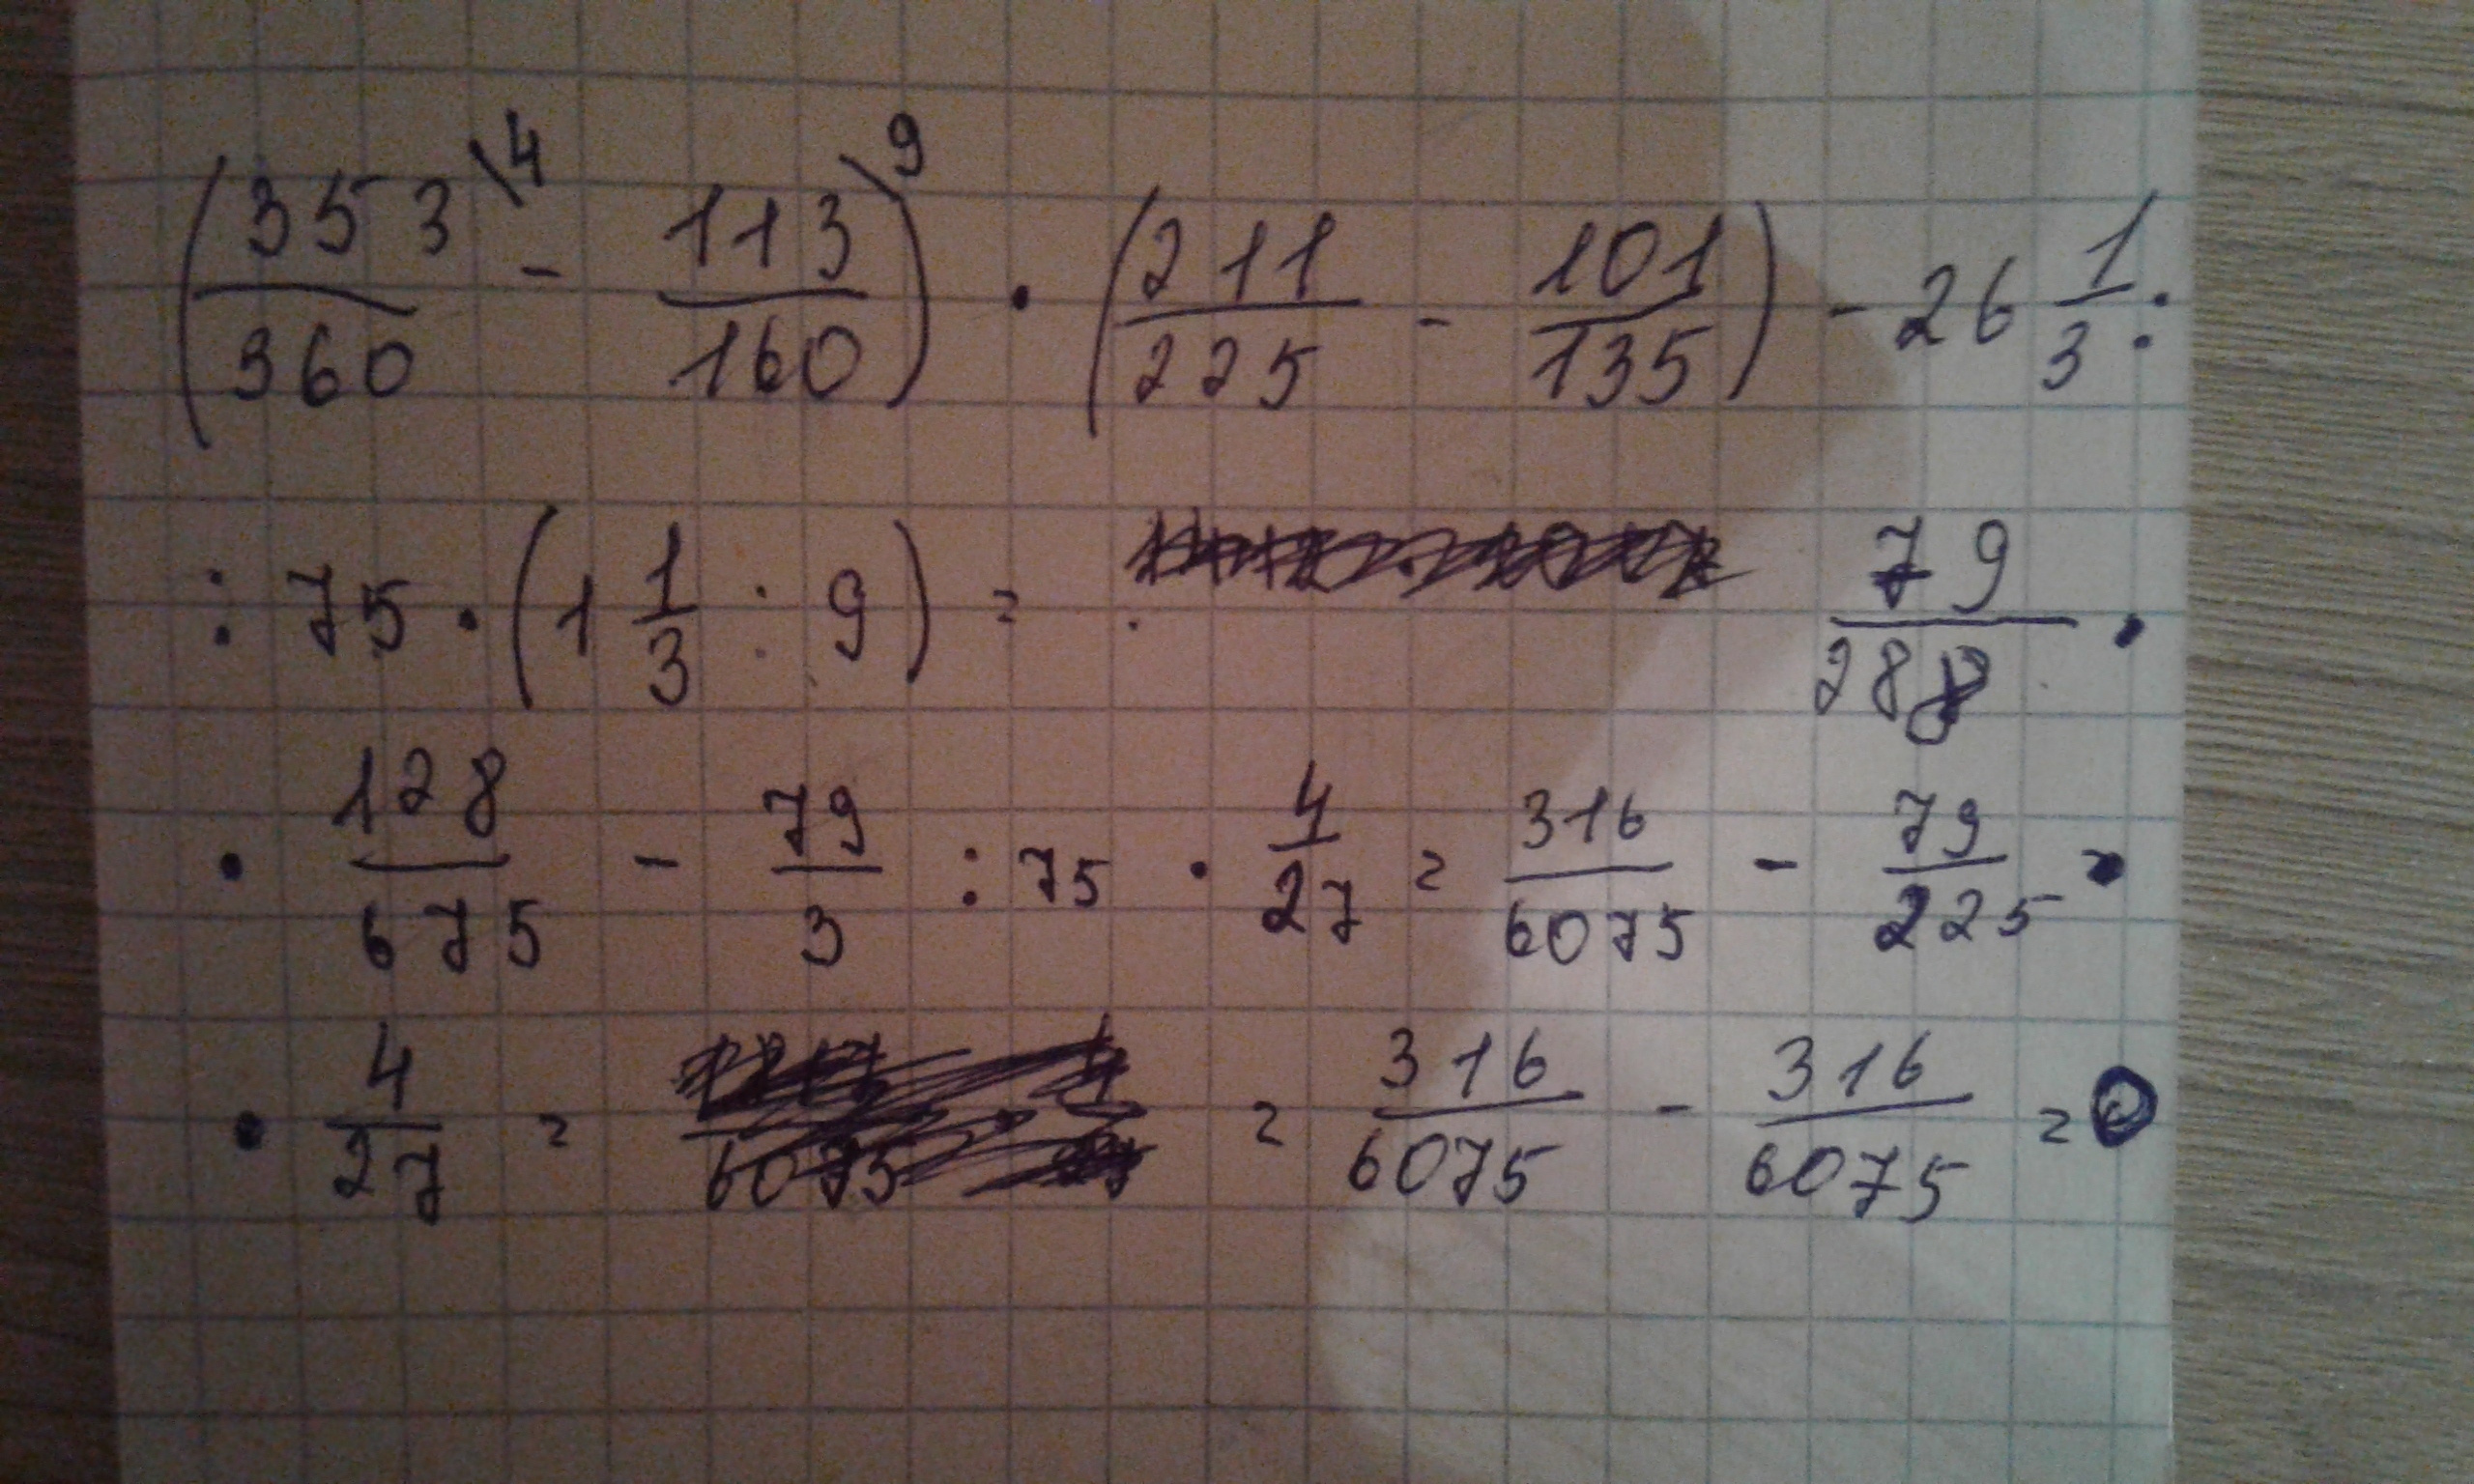 (353/360 \4 - 113/160 \9) · (211/225 - 101/135) - 26 1/3 :
: 75 · (1 1/3 : 9) = 79/288 ·
· 128/675 - 79/3 : 75 · 4/27 = 316/6075 - 79/225 ·
· 4/27 = = 316/6075 - 316/6075 = 0